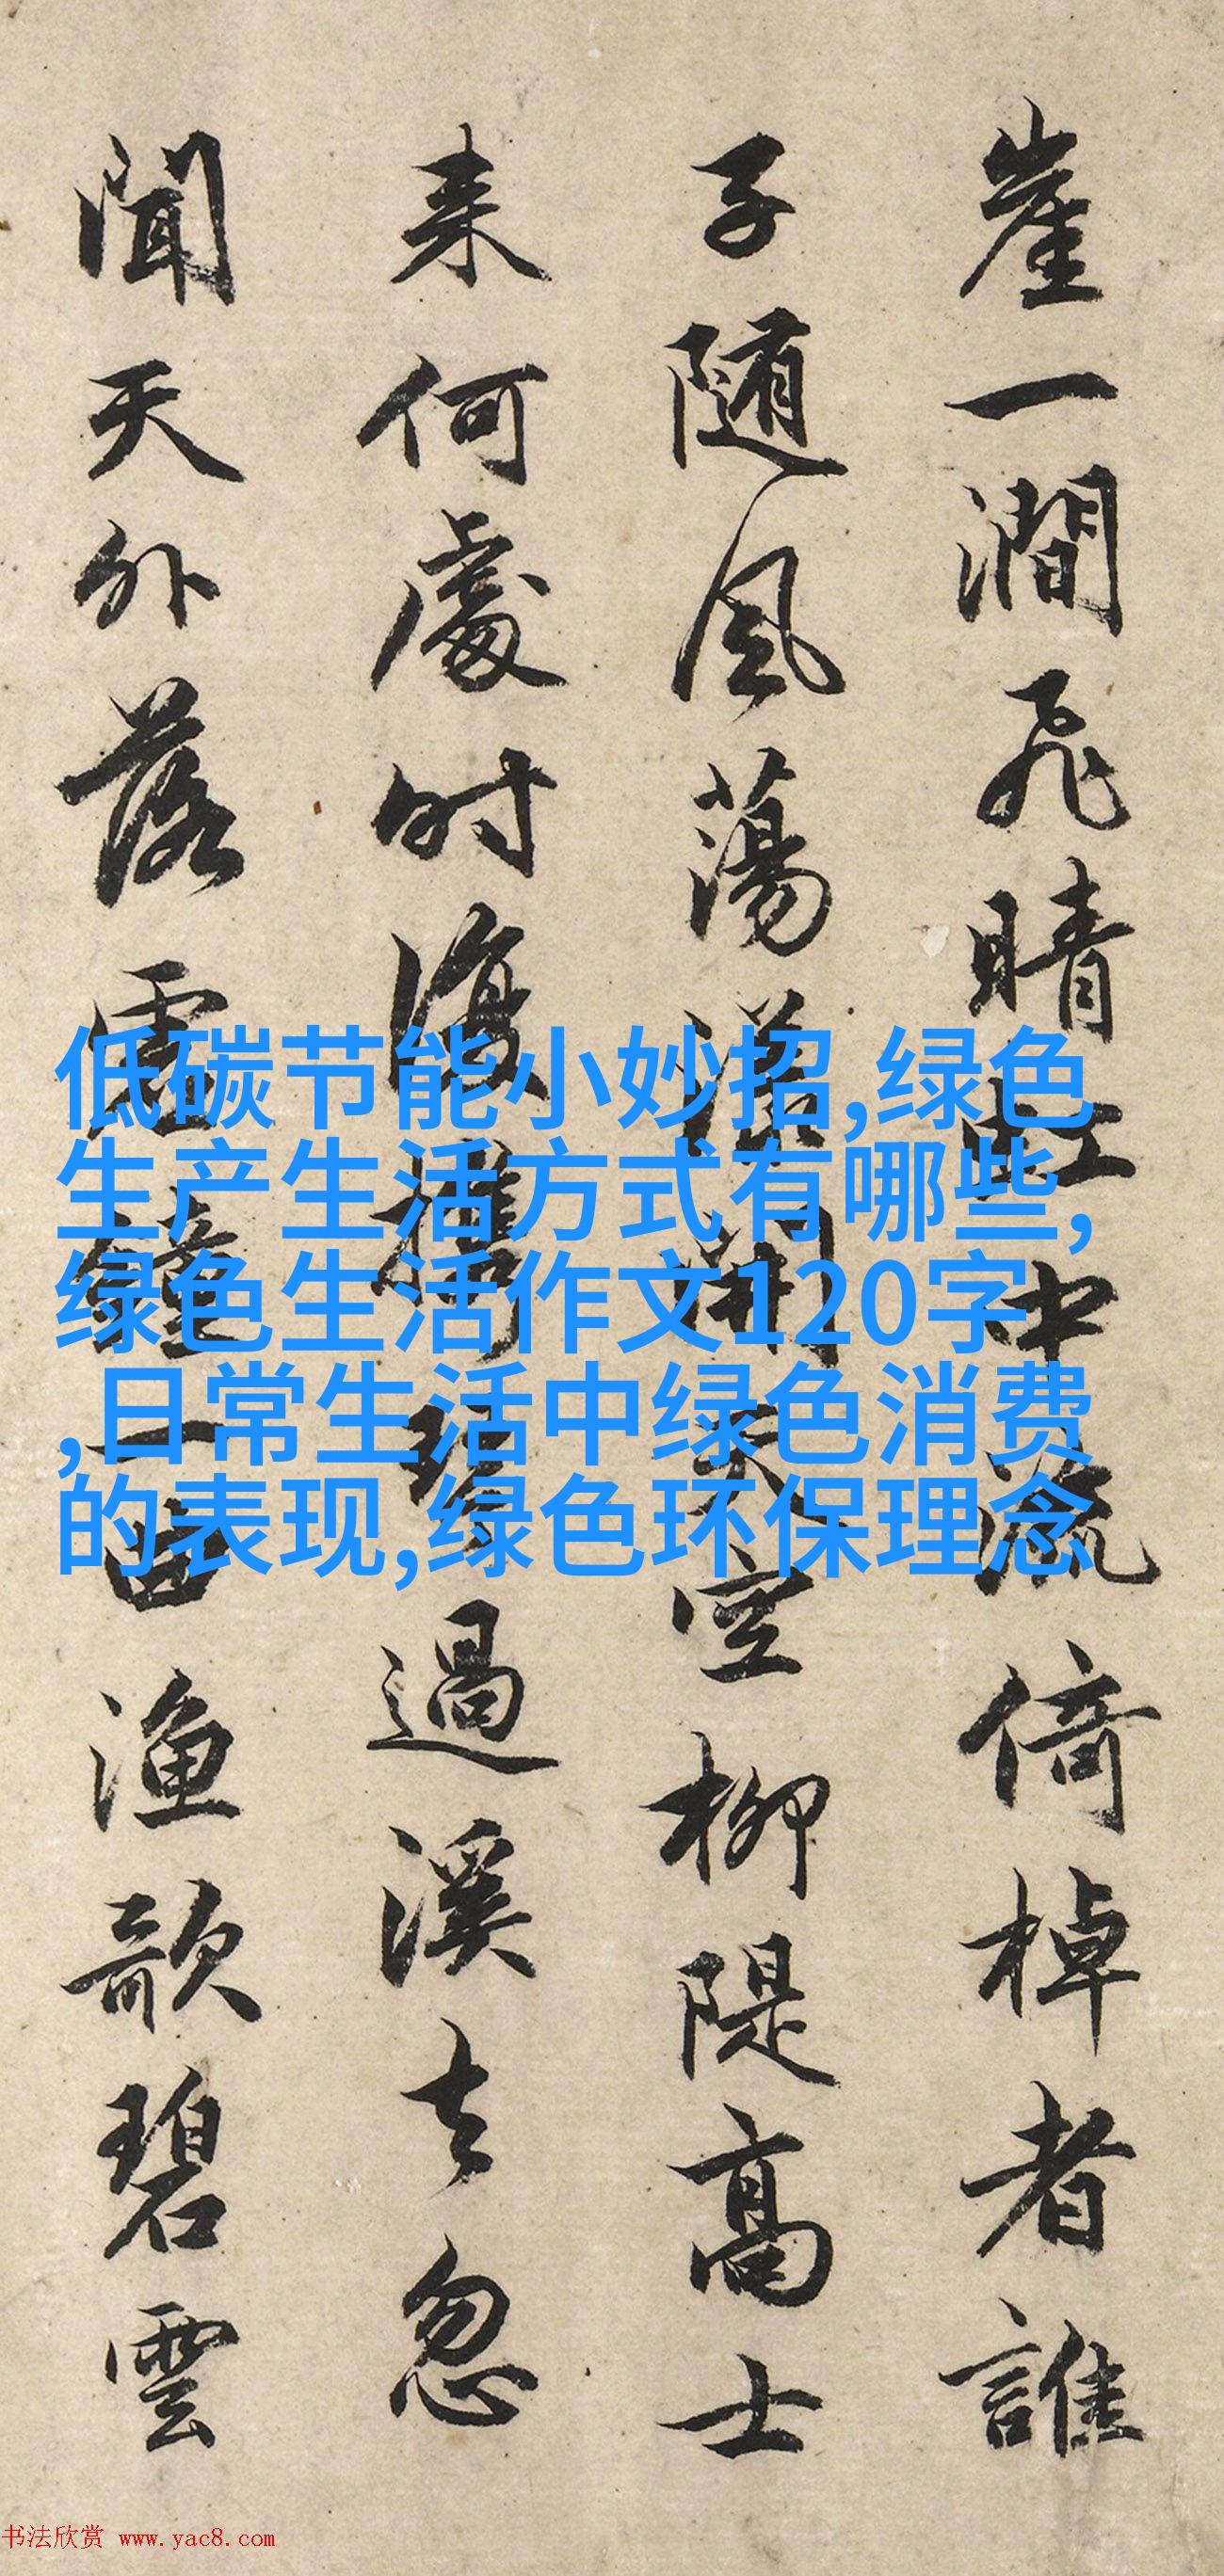 崖一澗飛晴虹中流倚棹者誰
子随風蕩漾開天空柳隄高士
来何處時復携琴過溪去忽
聞天外落鐘一曲漁歌碧雲
低碳节能小妙招,绿色
生产生活方式有哪些,
绿色生活作文120字
,日常生活中绿色消费
的表现,绿色环保理念
书法欣赏 www.yac8.com